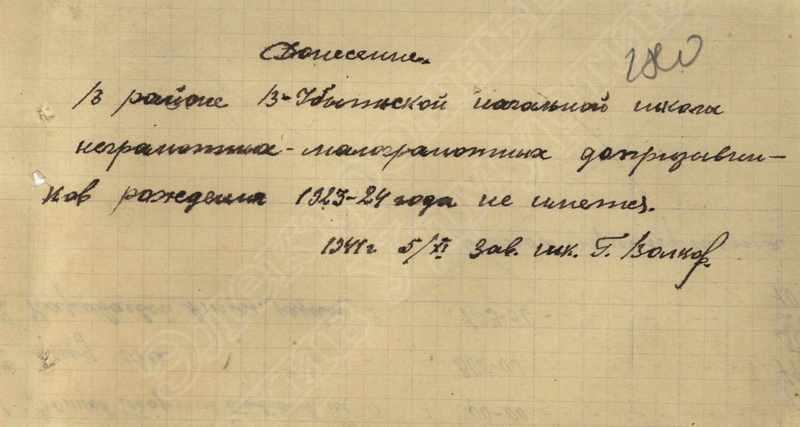 Донесение.
180
В районе В-Убытьской начальной школы
неграмотных-малограмотных допризывни-
ков рождения 1923-24 года не имеется.
1941 г 5/XI Зав. шк. Г. Волков.